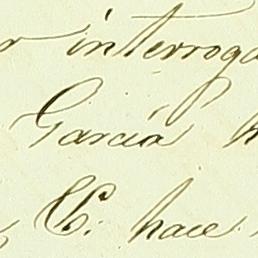 r interroga
García h
C. hace